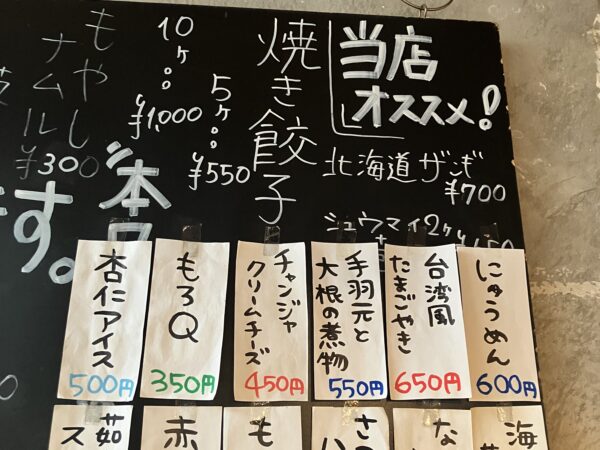 当店
オススメ!
北海道ザンギ
¥700
シュウマイ2ヶ
焼き餃子
5ヶ
¥550
10ヶ
¥1,000
もやし
ナムル
¥300
す。
にゅうめん
600円
台湾風
たまごやき
650円
手羽元と
大根の煮物
550円
チャンジャ
クリームチーズ
450円
もろQ
350円
杏仁アイス
500円
海
な
さつ
も
赤
茹
ス